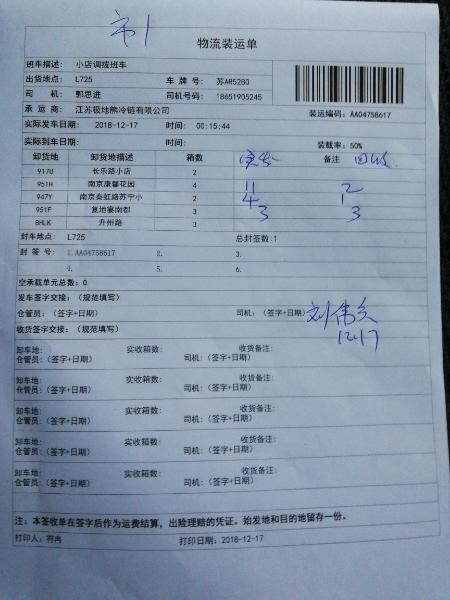 市1
物流装运单
班车描述: 小店调拨班车
出货地点: L725 车 牌 号: 苏AR52B0
司 机: 郭思进 司机号码: 18651905245
承 运 商: 江苏极地熊冷链有限公司 装运编码: AA04758617
实际发车日期: 2018-12-17 时间: 00:15:44
实际到车日期: 时间: 装载率: 50%
卸货地 卸货地描述 箱数 实发 备注 回收
917U 长乐路小店 2
951H 南京康馨花园 4 11 2
947Y 南京秦虹路苏宁小 2 4 1
951F 复地宴南都 3 3 3
8HLK 升州路 3
封车地点: L725 总封签数:1
封 签 号: 1.AA04758617 2. 3.
4. 5. 6.
空承载单元总数: 0
发车签字交接: (规范填写)
仓管员: (签字+日期) 司机: (签字+日期) 12.17
收货签字交接: (规范填写)
卸车地: 实收箱数: 收货备注:
仓管员: (签字+日期) 司机: (签字+日期)
卸车地: 实收箱数: 收货备注:
仓管员: (签字+日期) 司机: (签字+日期)
卸车地: 实收箱数: 收货备注:
仓管员: (签字+日期) 司机: (签字+日期)
卸车地: 实收箱数: 收货备注:
仓管员: (签字+日期) 司机: (签字+日期)
卸车地: 实收箱数: 收货备注:
仓管员: (签字+日期) 司机: (签字+日期)
注: 本签收单在签字后作为运费结算, 出险理赔的凭证。始发地和目的地留存一份。
打印人: 符冉 打印日期: 2018-12-17